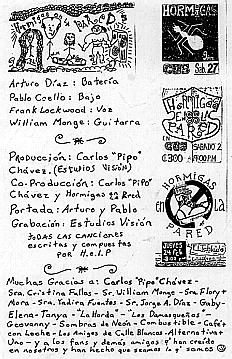 Hormigas en la Pared
Arturo Díaz : Batería
Pablo Coello : Bajo
Frank Lockwood : Voz
William Monge : Guitarra
Producción : Carlos "Pipo"
Chávez. (Estudios Visión)
Co-Producción : Carlos "Pipo"
Chávez y Hormigas en la Pared
Portada : Arturo y Pablo
Grabación : Estudios Visión
TODAS LAS CANCIONES
escritas y compuestas
por H.E.L.P
Muchas Gracias a : Carlos "Pipo" Chávez -
Sra. Cristina Fallas - Sr. William Monge - Sra Flory +
Mora - Sra. Yadira Fuentes - Sr. Jorge A. Díaz - Gaby -
Elena - Tanya - "La Horda" - "Los Damasqueños"
Geovanny - Sombras de Neón - Combustible - Café +
con Leche - Los Amigos de Calle Blancos - Alternativo +
Uno - y a los fans y demás amigos q' han creído
en nosotros y han hecho que seamos lo q' somos
HORMIGAS
Sab. 27
HORMIGAS
EN LA
PARED
SABADO 2
HORMIGAS
en la
PARED